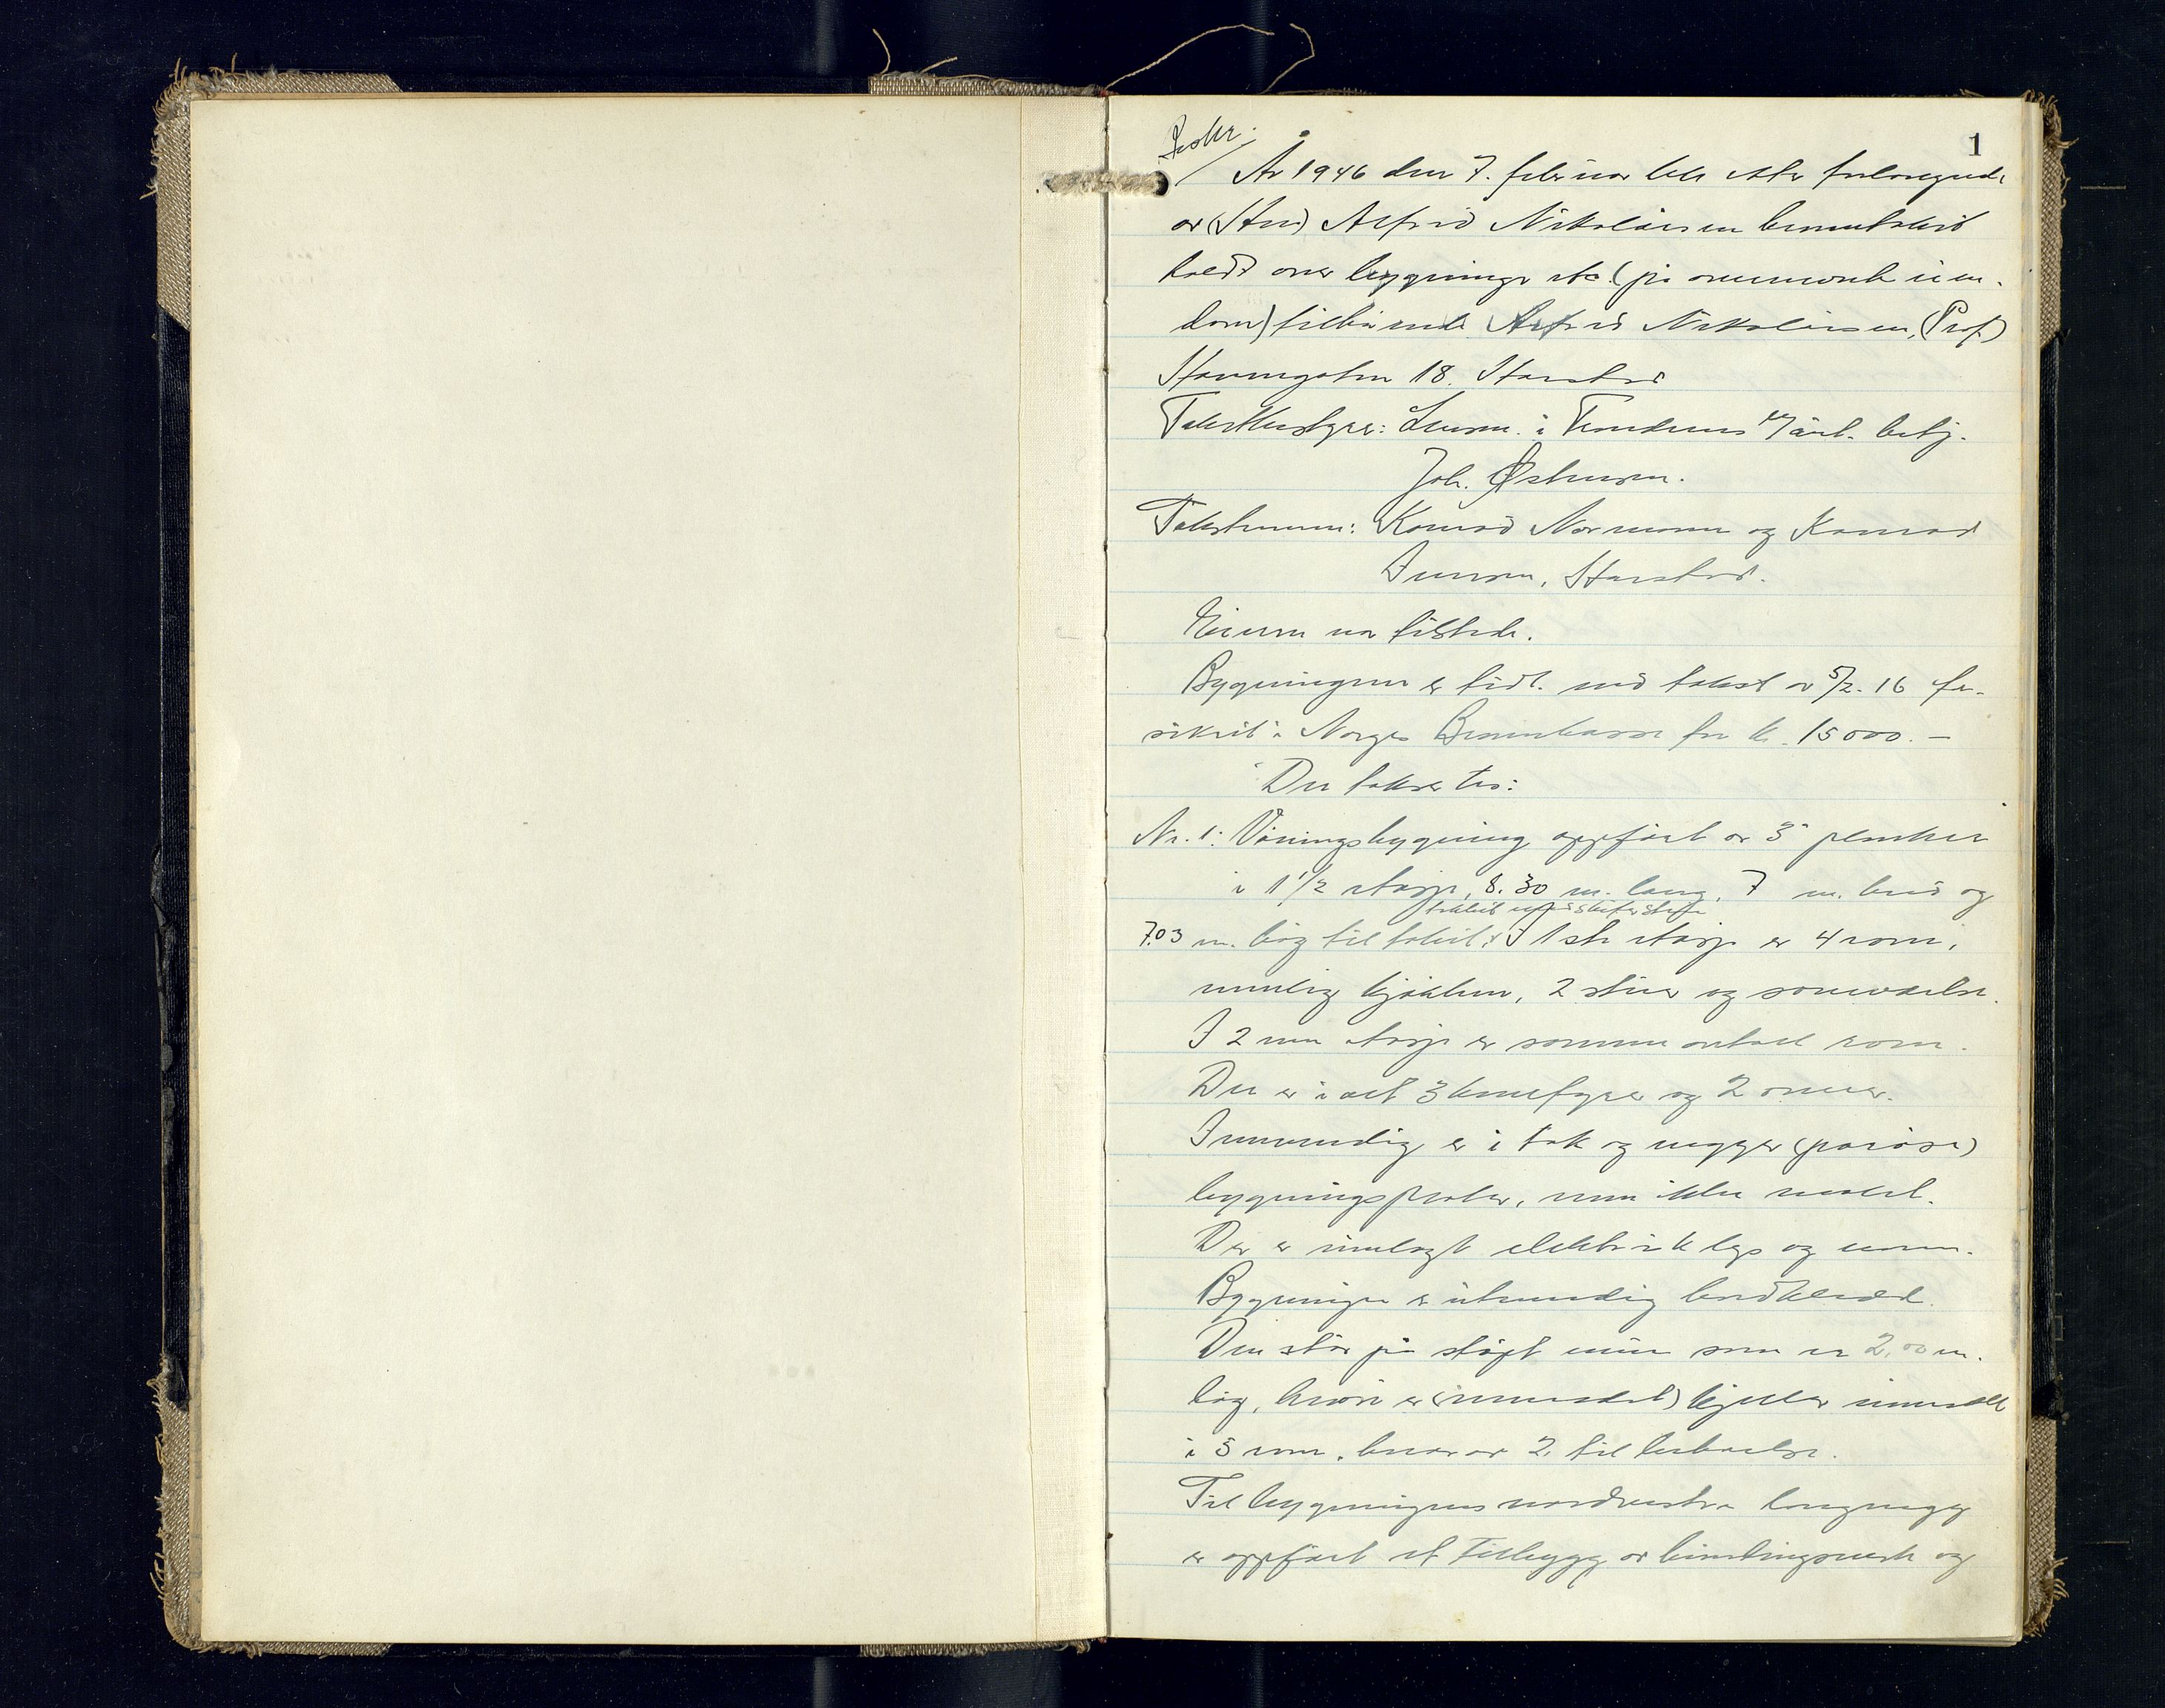 1
År 1946 den 7. februar ble etter forlangende
av (Hr.) Alfred Nikolaisen branntakst
holdt over bygninger etc. (på ovennevnte eien-
dom) tilhørende Alfred Nikolaisen, (Prof.)
Havnegaten 18. Harstad
Takstbestyrer: Lensm. i Trondenes e/ ant. betj.
Joh. Østensen.
Takstmenn: Konrad Normann og Konrad
Jensen, Harstad.
Eieren var tilstede.
Bygningen er tidl. ved takst av 5/2. 16 for-
sikret i Norges Brannkasse for kr. 15000.-
Der takseres:
Nr. 1: Våningsbygning oppført av 3" planker
i 1 1/2 etasje, 8.30 m. lang, 7 m. bred og
tekket med skiferstein
7.03 m. høg til taket. I 1ste etasje er 4 rom,
nemlig kjøkken, 2 stuer og soveværelse.
I 2nen etasje er samme antall rom.
Der er i alt 3 komfyrer og 2 ovner.
Innvendig er i tak og vegger (porøse)
bygningsplater, men ikke malt.
Der er innlagt elektrisk lys og vann.
Bygningen er utvendig bordkledd.
Den står på støpt mur som er 2,00 m.
høg, hvori er (innredet) kjeller inndelt
i 3 rom, hvorav 2 til beboelse.
Til bygningens nordvestre langvegg
er oppført et tilbygg av bindingsverk og